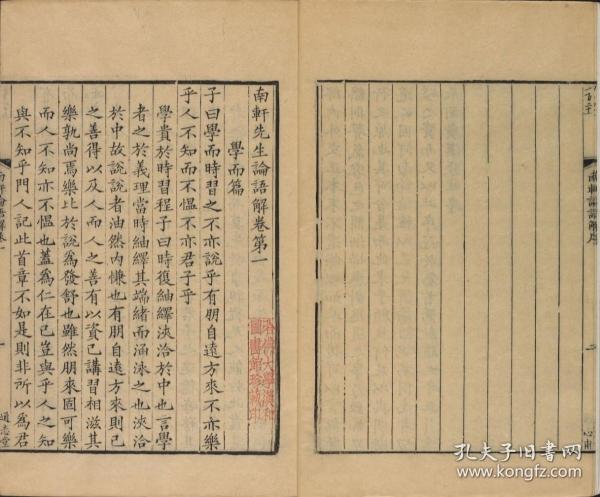 南軒先生論語解卷第一
學而篇
子曰學而時習之不亦說乎有朋自遠方來不亦樂
乎人不知而不慍不亦君子乎
學貴於時習程子曰時復紬繹浹洽於中也言學
者之於義理當時紬繹其端緒而涵泳之也浹洽
於中故說說者油然內慊也有朋自遠方來則已
之善得以及人而人之善有以資己講習相滋其
樂孰尚焉樂比於說為發舒也雖然朋來固可樂
而人不知亦不慍也蓋為仁在己豈與乎人之知
與不知乎門人記此首章不如是則非所以為君
通志堂
孔夫子旧书网
www.kongfz.com